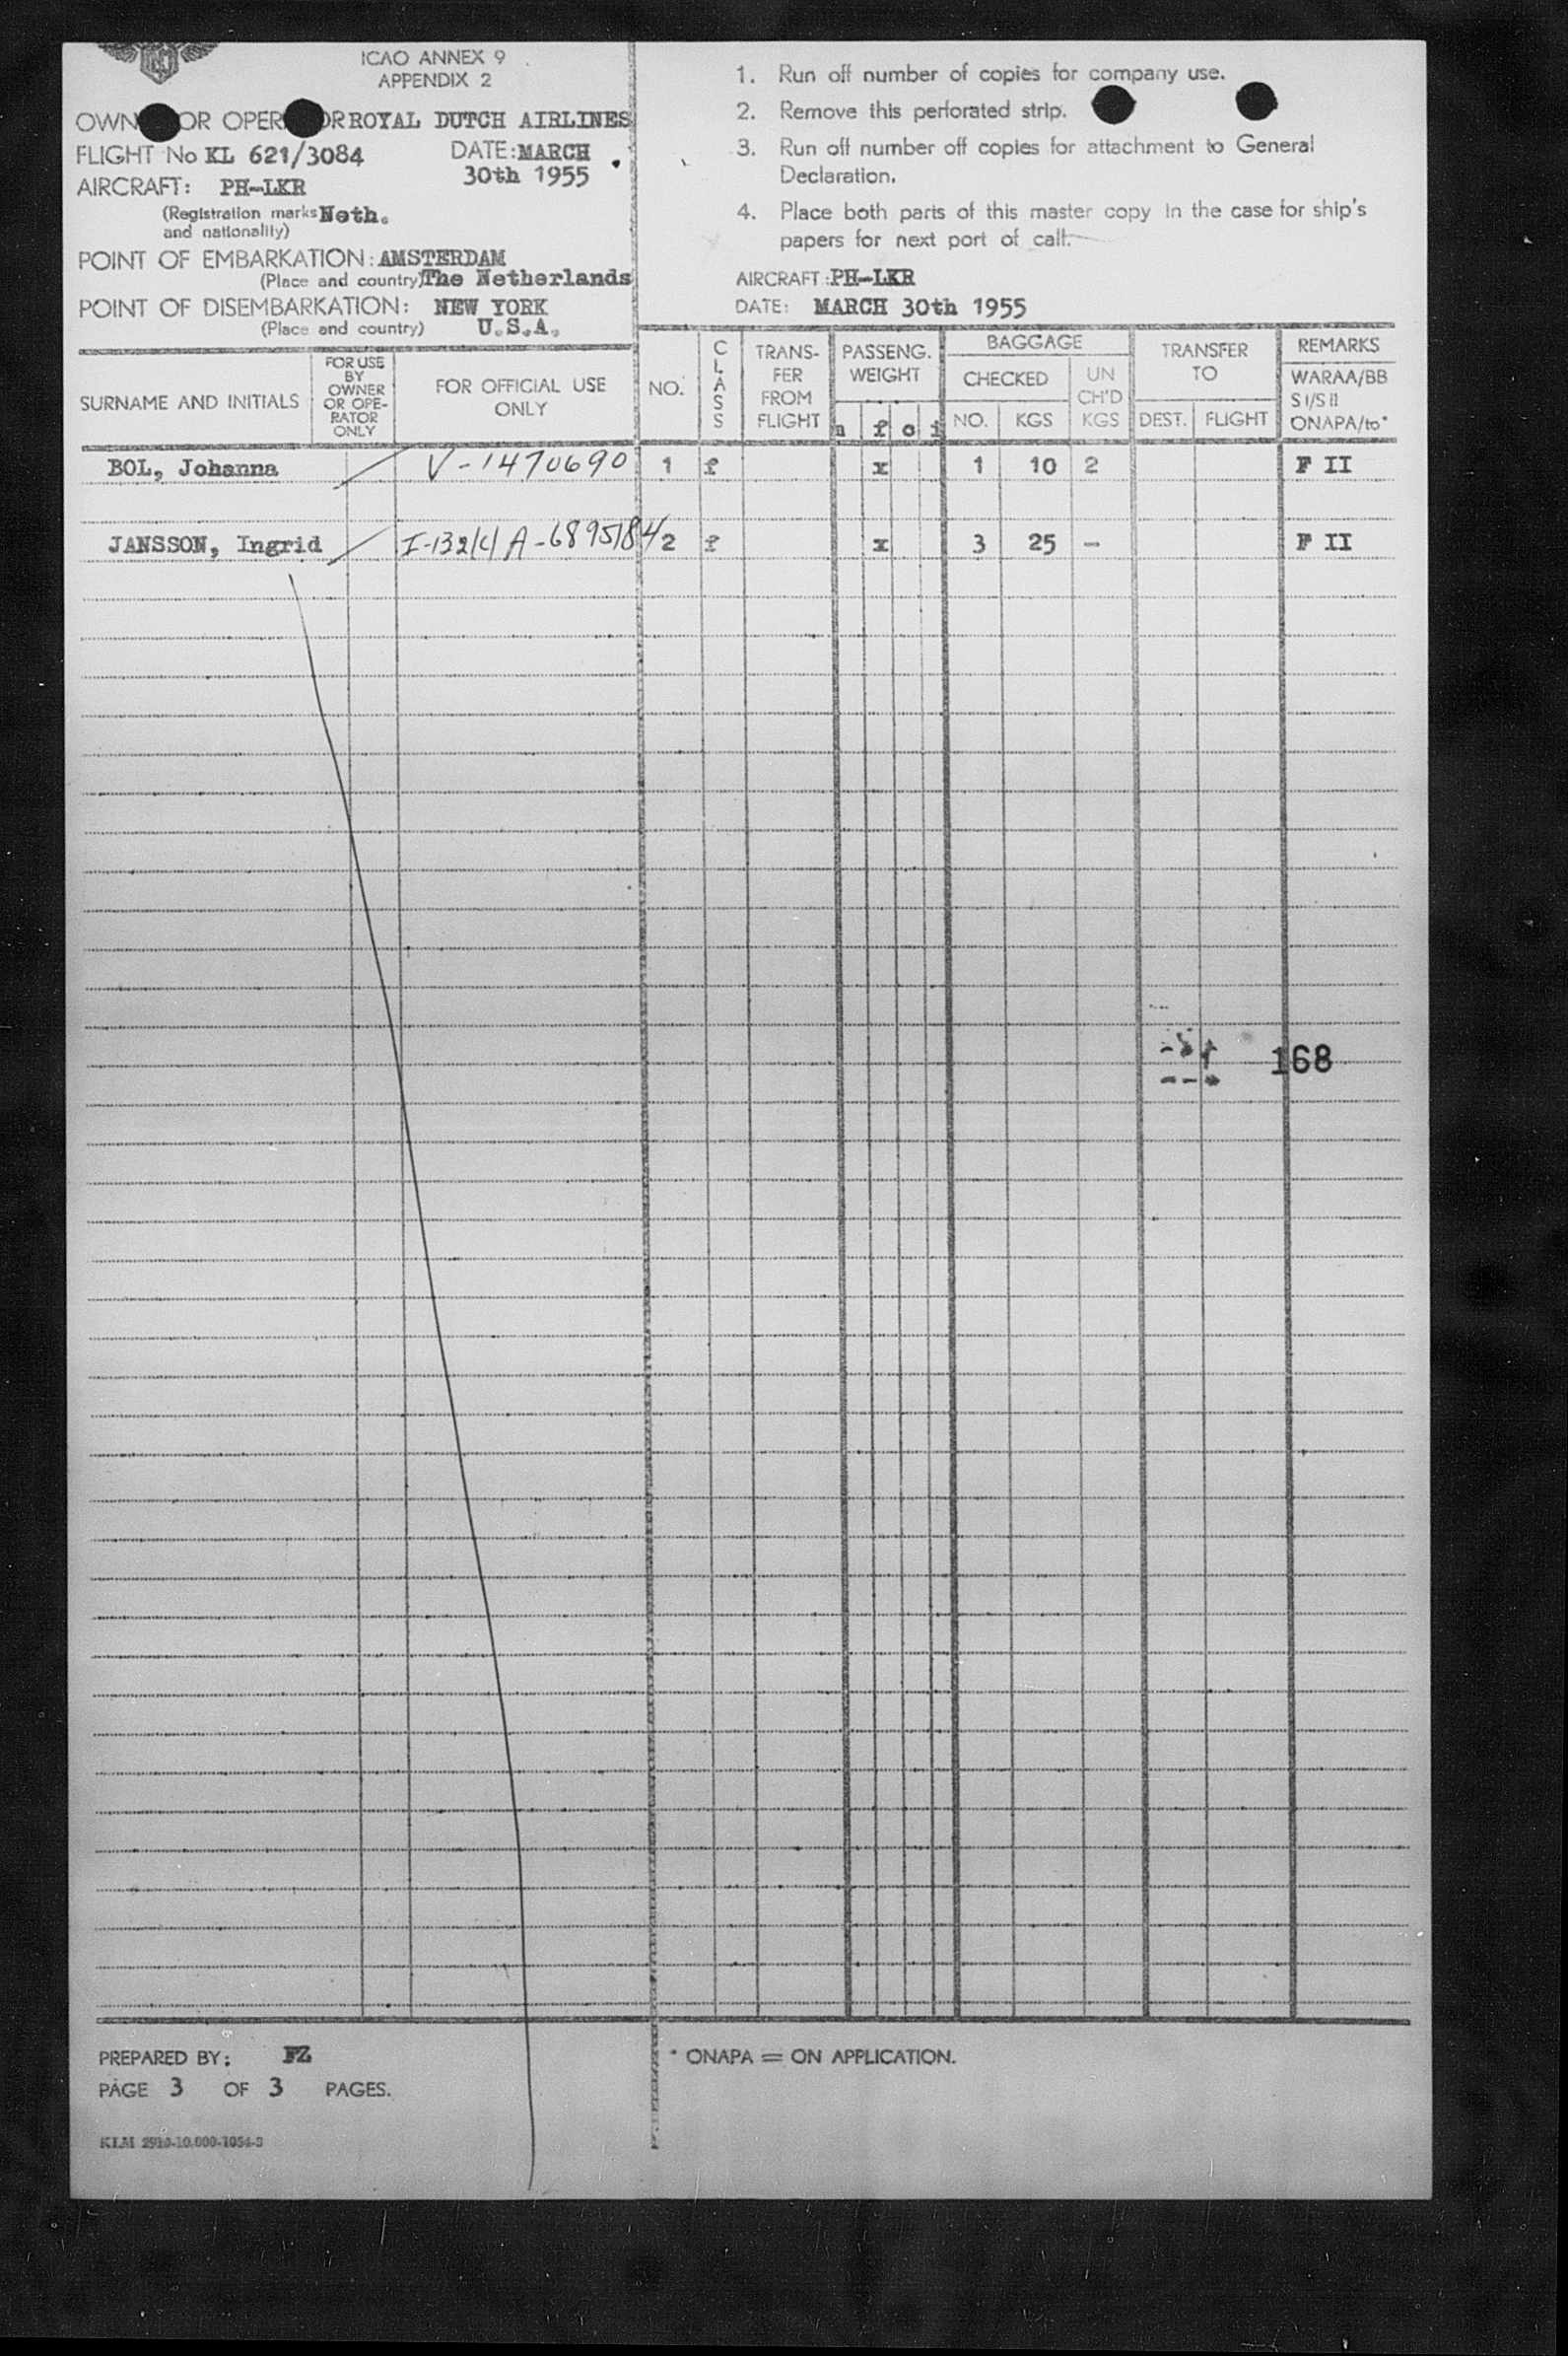 ICAO ANNEX 9
APPENDIX 2
OWN OR OPER OR ROYAL DUTCH AIRLINES
FLIGHT No KL 621/3084 DATE: MARCH
30th 1955
AIRCRAFT: PH-LKR
(Registration marks Neth.
and nationality)
POINT OF EMBARKATION: AMSTERDAM
(Place and country) The Netherlands
POINT OF DISEMBARKATION: NEW YORK
(Place and country) U.S.A.
1. Run off number of copies for company use.
2. Remove this perforated strip.
3. Run off number off copies for attachment to General
Declaration.
4. Place both parts of this master copy in the case for ship's
papers for next port of call.
AIRCRAFT: PH-LKR
DATE: MARCH 30th 1955
SURNAME AND INITIALS
FOR USE
BY
OWNER
OR OPE-
RATOR
ONLY
FOR OFFICIAL USE
ONLY
NO.
CLASS
TRANS-
FER
FROM
FLIGHT
PASSENG.
WEIGHT
m f c i
BAGGAGE
CHECKED
NO. KGS
UN
CH'D
KGS
TRANSFER
TO
DEST. FLIGHT
REMARKS
WARAA/BB
S I/S II
ONAPA/to*
BOL, Johanna V-1470690 1 f x 1 10 2 F II
JANSSON, Ingrid I-132(c) A-6895184 2 f x 3 25 - F II
168
PREPARED BY: FZ
PAGE 3 OF 3 PAGES.
* ONAPA = ON APPLICATION.
KLM 2910-10.000-1054-S